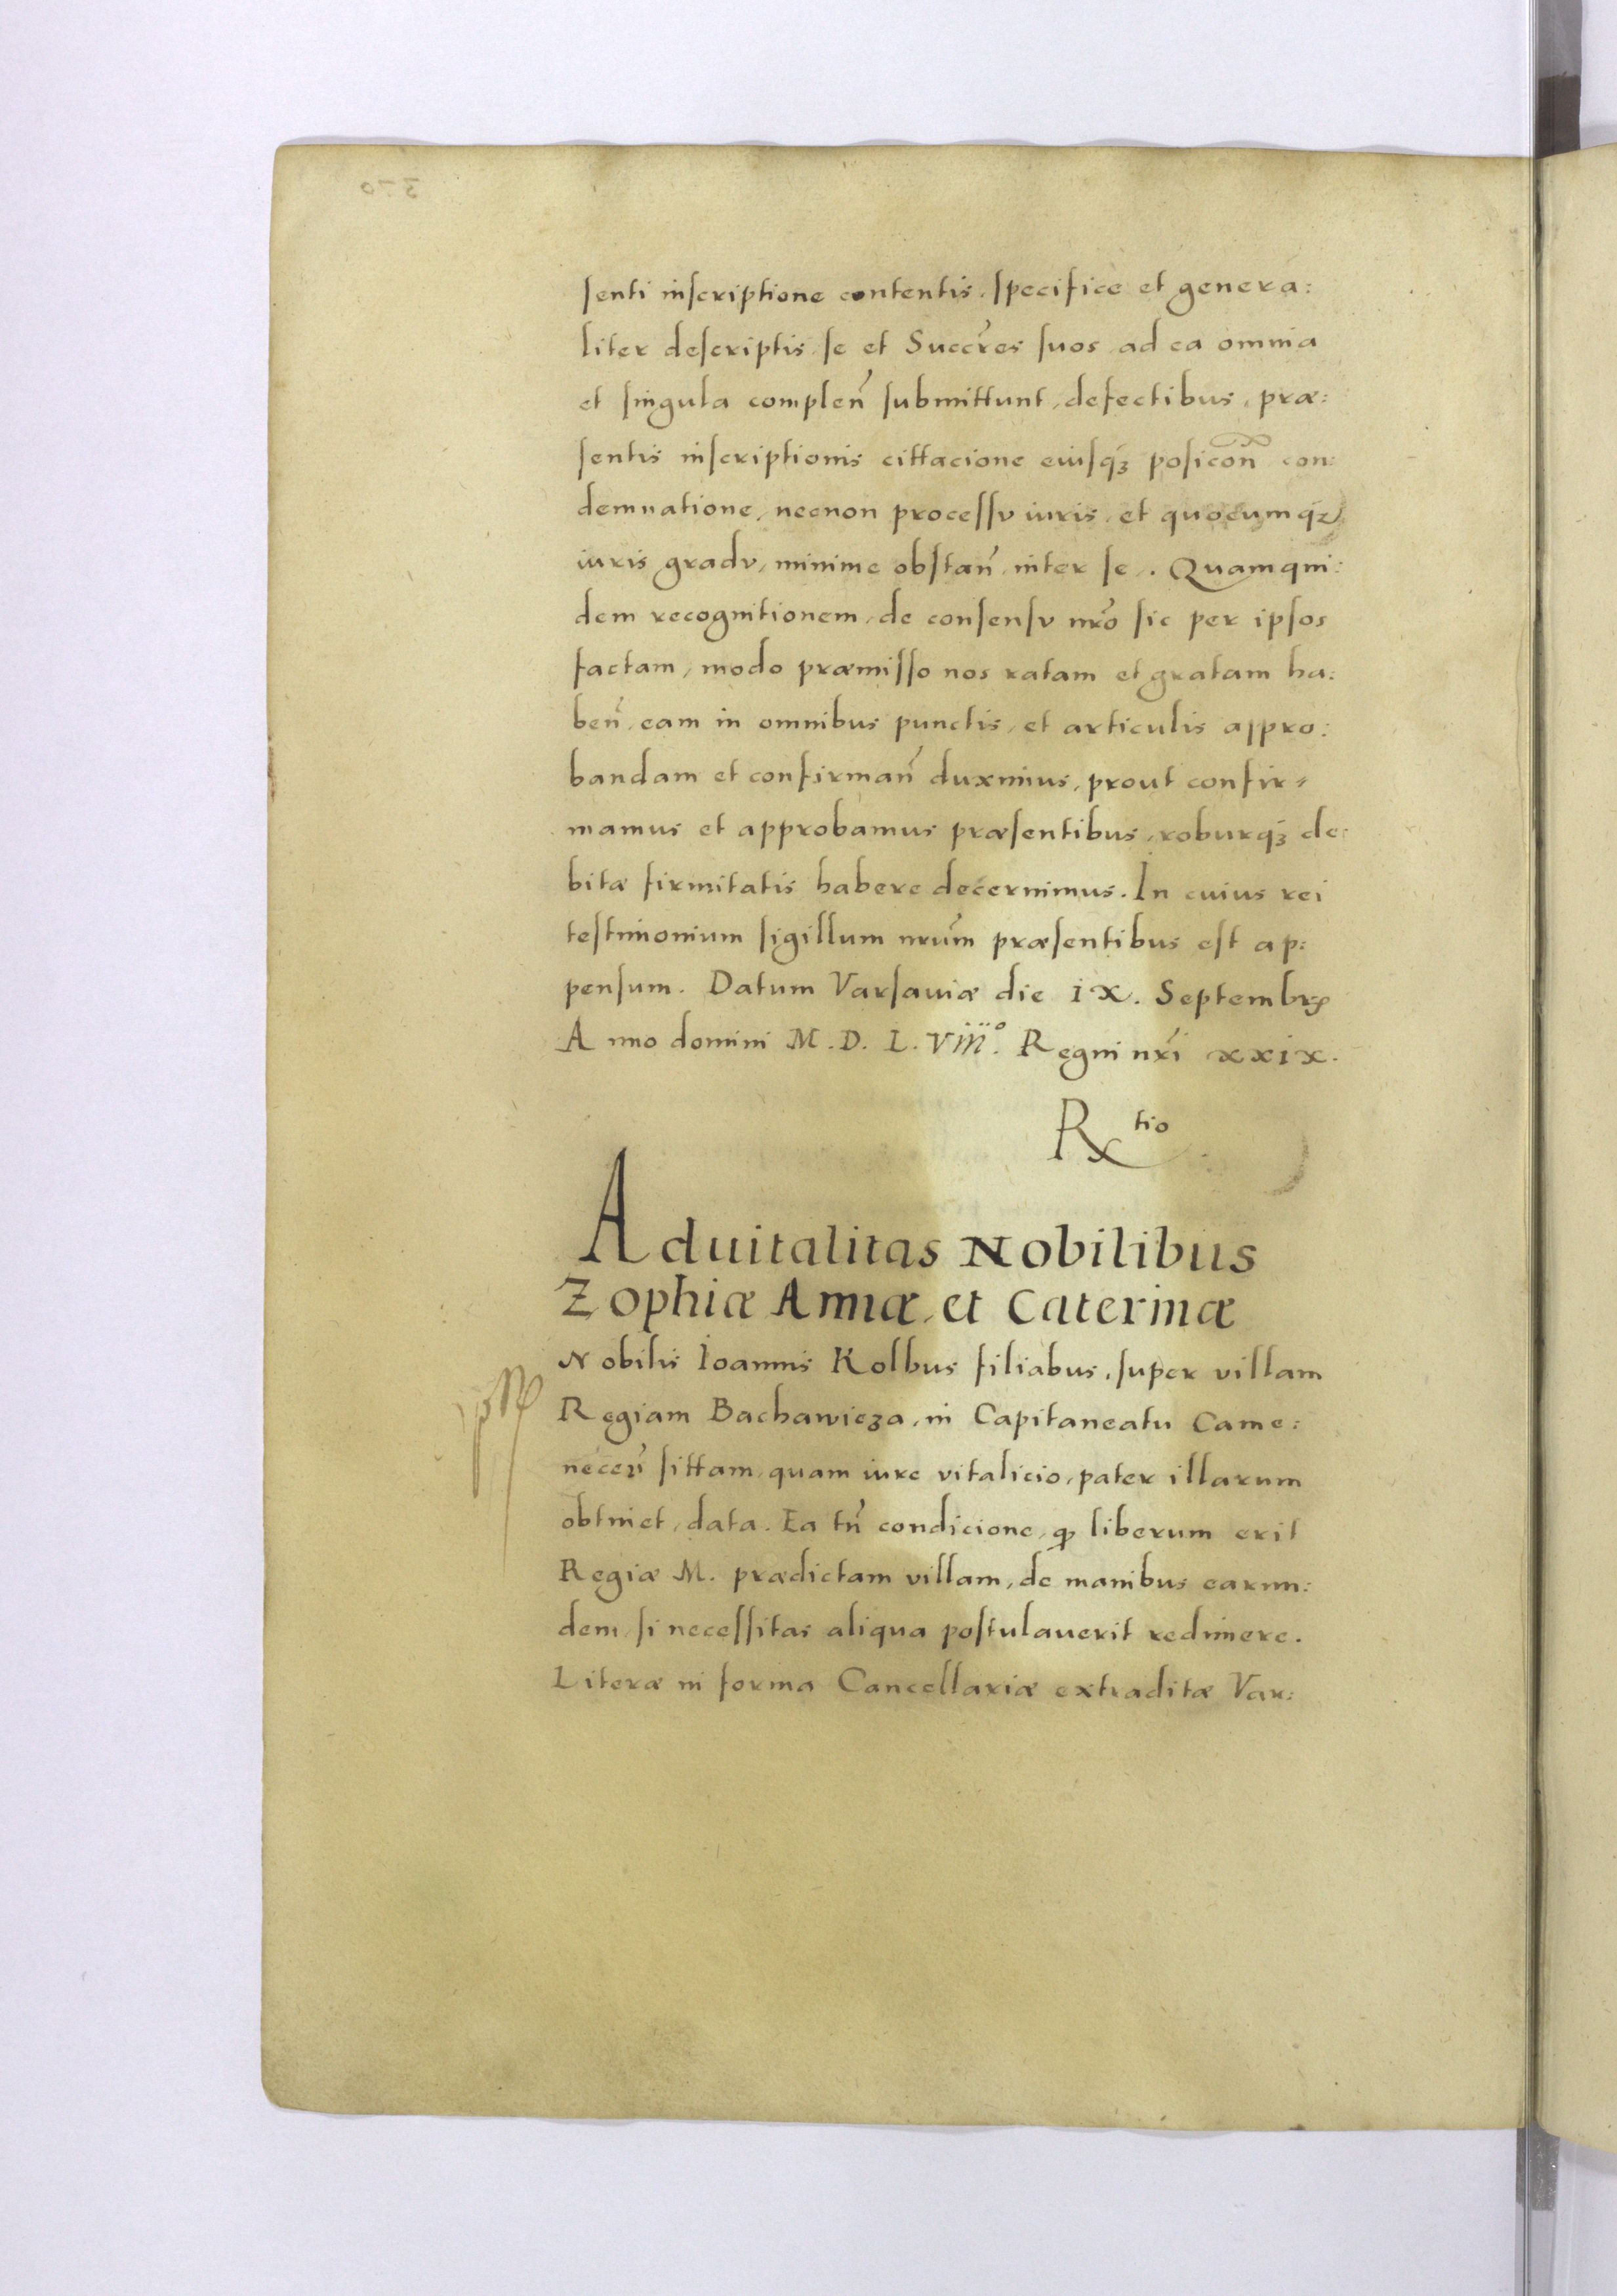 senti inscriptione contentis, specifice et genera:
liter descriptis, se et Succr̃es suos, ad ea omnia
et singula compleñ submittunt, defectibus, præ:
sentis inscriptionis cittacione eiusq́ꝫ posicoñ con:
demnatione, necnon processv iuris, et quocumq́ꝫ
iuris gradv, minime obstañ, inter se. Quamqui:
dem recognitionem, de consensv nr̃o sic per ipsos
factam, modo præmisso nos ratam et gratam ha:
beñ, eam in omnibus punctis, et articulis appro:
bandam et confirmañ duximus, prout confir⸗
mamus et approbamus præsentibus, roburq́ꝫ de:
bitæ firmitatis habere decernimus. In cuius rei
testimonium sigillum nrũm præsentibus est ap:
pensum. Datum Varsauiæ die IX. Septembrꝭ
Anno domini M.D.L.Viiiº. Regni nr̃i xxix.
Rtio
Aduitalitas Nobilibus
Zophiæ Annæ, et Caterinæ
Nobilis Ioannis Kolbus filiabus, super villam
Regiam Bachawicza, in Capitaneatu Came:
neceñ sittam, quam iure vitalicio, pater illarum
obtinet, data. Ea tñ condicione, ꝙ liberum erit
Regiæ M. prædictam villam, de manibus earun:
dem, si necessitas aliqua postulauerit redimere.
Literæ in forma Cancellariæ extraditæ Var: